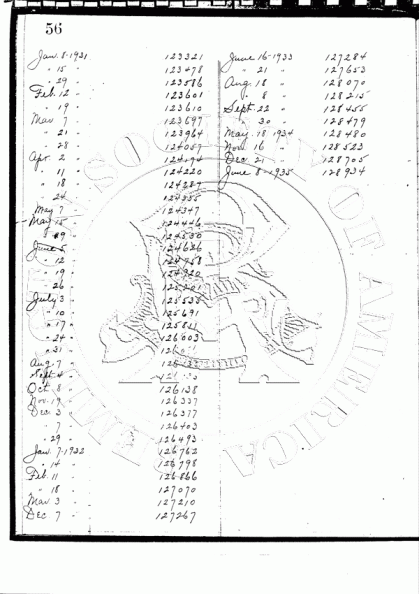 56
Jan. 8-1931 123321
" 15 " 123478
" 29 " 123586
Feb. 12 " 123601
" 19 " 123610
Mar 7 " 123697
" 21 " 123964
" 28 " 124057
Apr. 2 " 124174
" 11 " 124220
" 18 " 124287
" 24 124335
May 7 " 124347
May 15 124446
" 29 " 124530
June 5 " 124626
" 12 " 124758
" 19 " 124920
" 26 125201
July 3 " 125538
" 10 " 125691
" 17 " 125811
" 24 " 126003
" 31 "
Aug. 7 "
Sept. 4 "
Oct. 8 " 126138
Nov. 19 " 126337
Dec. 3 " 126377
" 7 126403
" 29 " 126493
Jan. 7-1932 126762
" 14 " 126798
Feb. 11 " 126866
" 18 " 127070
Mar 3 " 127210
Dec 7 " 127267
June 16-1933 127284
" 21 " 127653
Aug. 18 " 128070
" 8 " 128215
Sept. 22 " 128455
" 30 " 128479
May. 18 1934 128480
Nov. 16 " 128523
Dec 21 " 128705
June 8-1935 128934
OF AMERICA